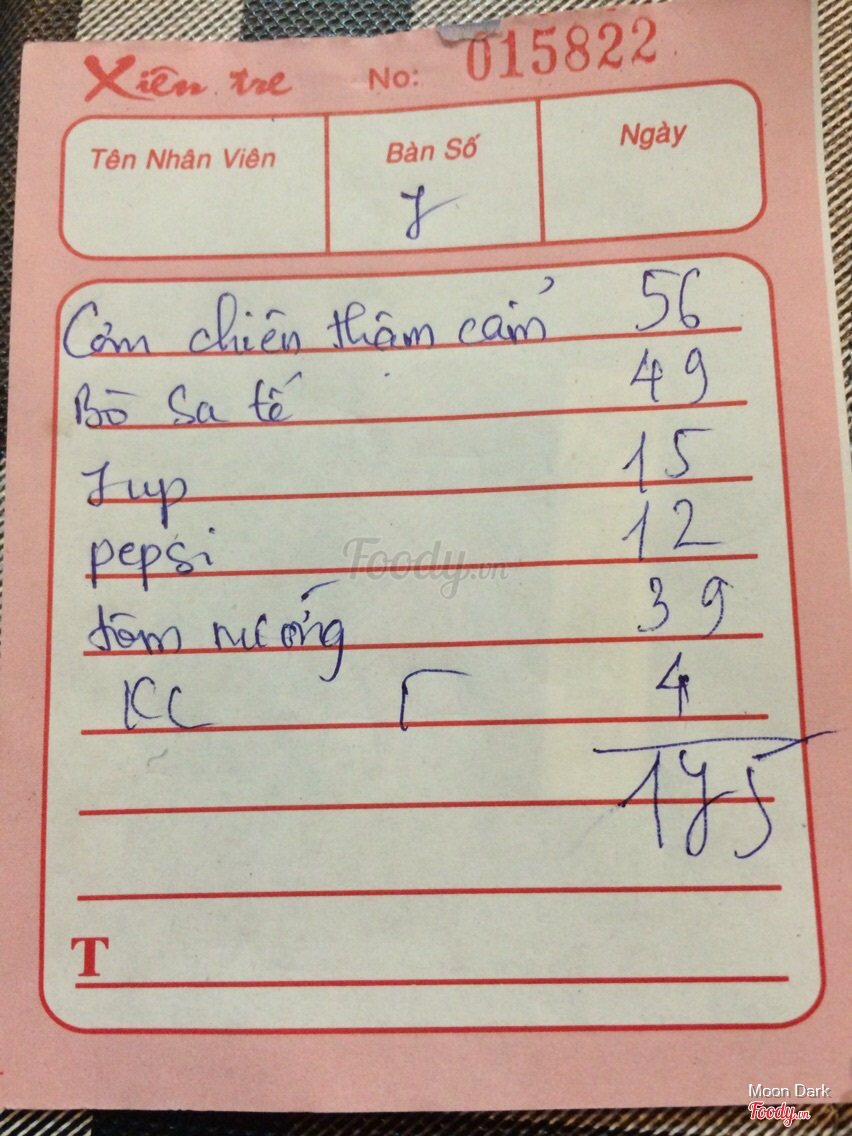 Xiên tre No: 015822
Tên Nhân Viên Bàn Số Ngày
7
Cơm chiên thâm cẩm 56
Bò Sa tế 49
7up 15
pepsi 12
tôm nướng 39
KL 4
175
T
Foody.vn
Moon Dark
Foody.vn